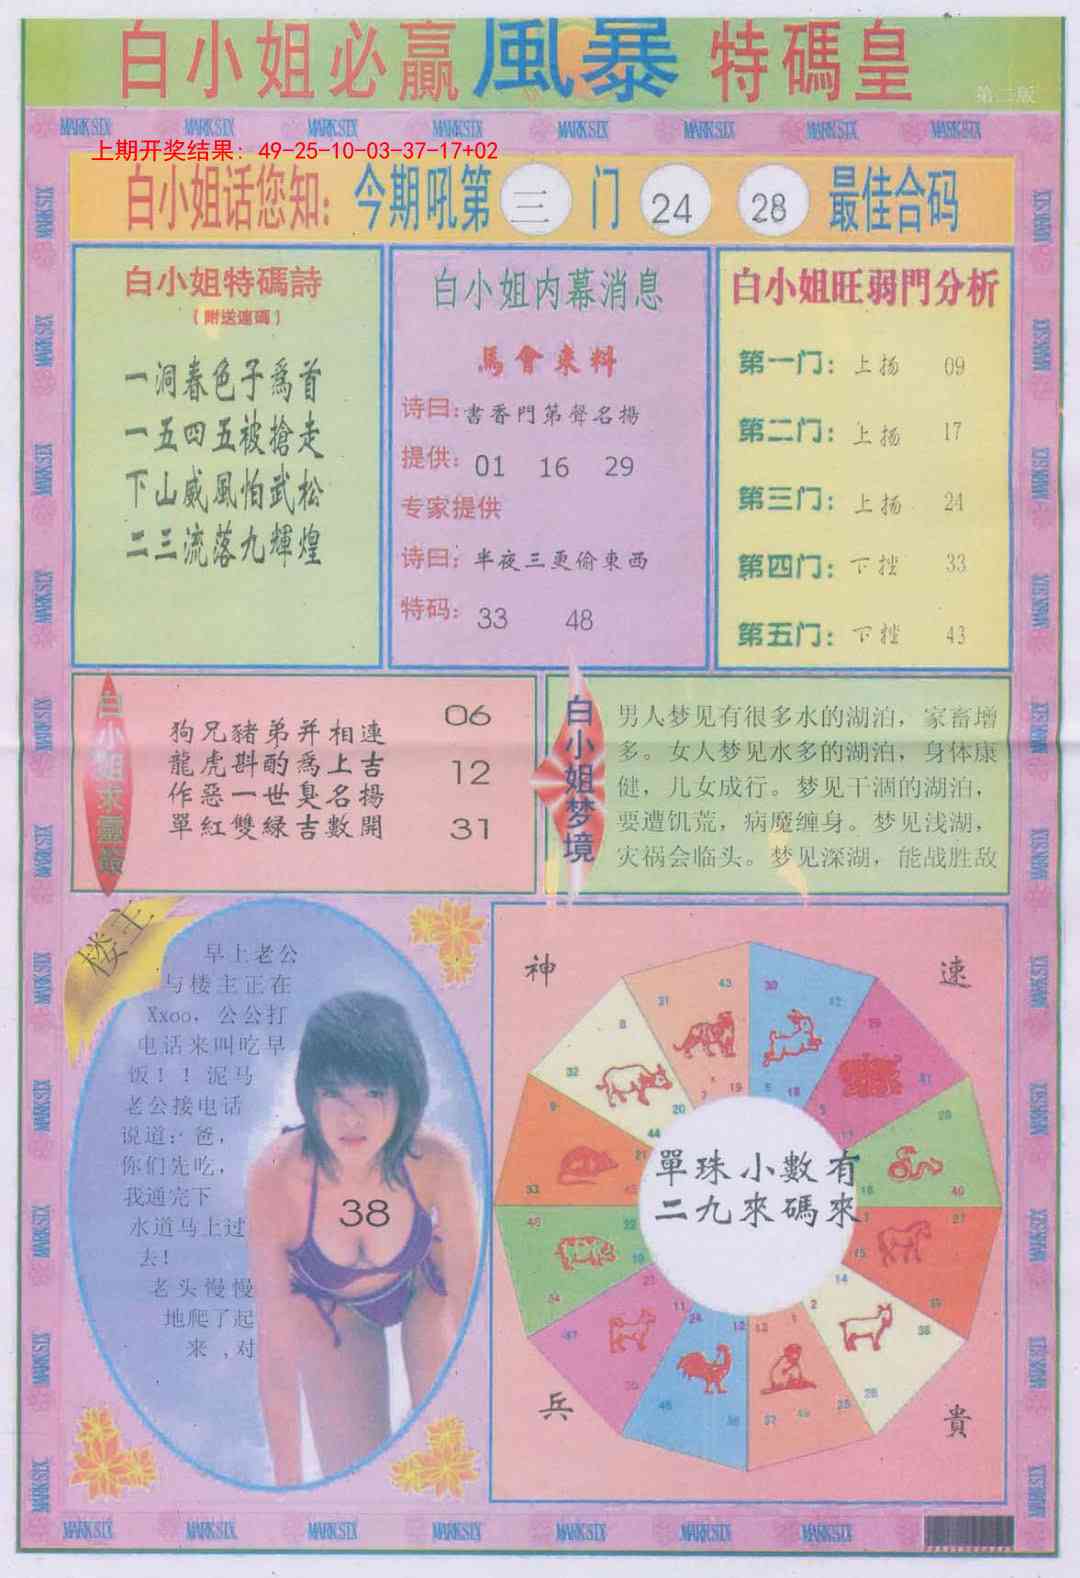 白小姐必贏風暴特碼皇
第二版
MARK SIX MARK SIX MARK SIX MARK SIX MARK SIX MARK SIX MARK SIX MARK SIX
上期开奖结果: 49-25-10-03-37-17+02
白小姐话您知: 今期吼第 三 门 24 28 最佳合码
白小姐特碼詩
(附送連碼)
一洞春色子爲首
一五四五被搶走
下山威風怕武松
二三流落九輝煌
白小姐内幕消息
馬會来料
诗曰: 書香門第聲名揚
提供: 01 16 29
专家提供
诗曰: 半夜三更偷東西
特码: 33 48
白小姐旺弱門分析
第一门: 上扬 09
第二门: 上扬 17
第三门: 上扬 24
第四门: 下挫 33
第五门: 下挫 43
狗兄豬弟并相連
龍虎斟酌爲上吉
作惡一世臭名揚
單紅雙緑吉數開
06
12
31
白小姐梦境
男人梦见有很多水的湖泊，家畜增
多。女人梦见水多的湖泊，身体康
健，儿女成行。梦见干涸的湖泊，
要遭饥荒，病魔缠身。梦见浅湖，
灾祸会临头。梦见深湖，能战胜敌
楼主
早上老公
与楼主正在
Xxoo，公公打
电话来叫吃早
饭！！泥马
老公接电话
说道：爸，
你们先吃，
我通完下
水道马上过
去!
老头慢慢
地爬了起
来,对
38
神
速
兵
貴
單珠小數有
二九來碼來
MARK SIX MARK SIX MARK SIX MARK SIX MARK SIX MARK SIX MARK SIX